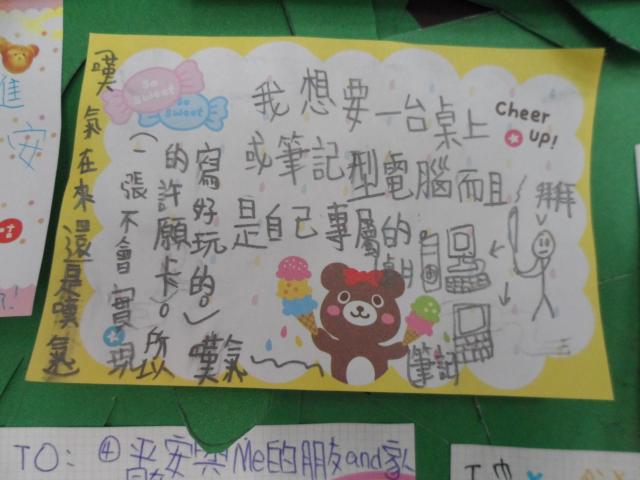 So sweet
So sweet
Cheer up!
我想要一台桌上
或筆記型電腦而且
是自己專屬的
拜拜
筆記
(一張不會實現
的許願卡。所以
寫好玩的。)
嘆氣
(嘆氣在來還是嘆氣)
進
安
TO: ④
Me的朋友and家